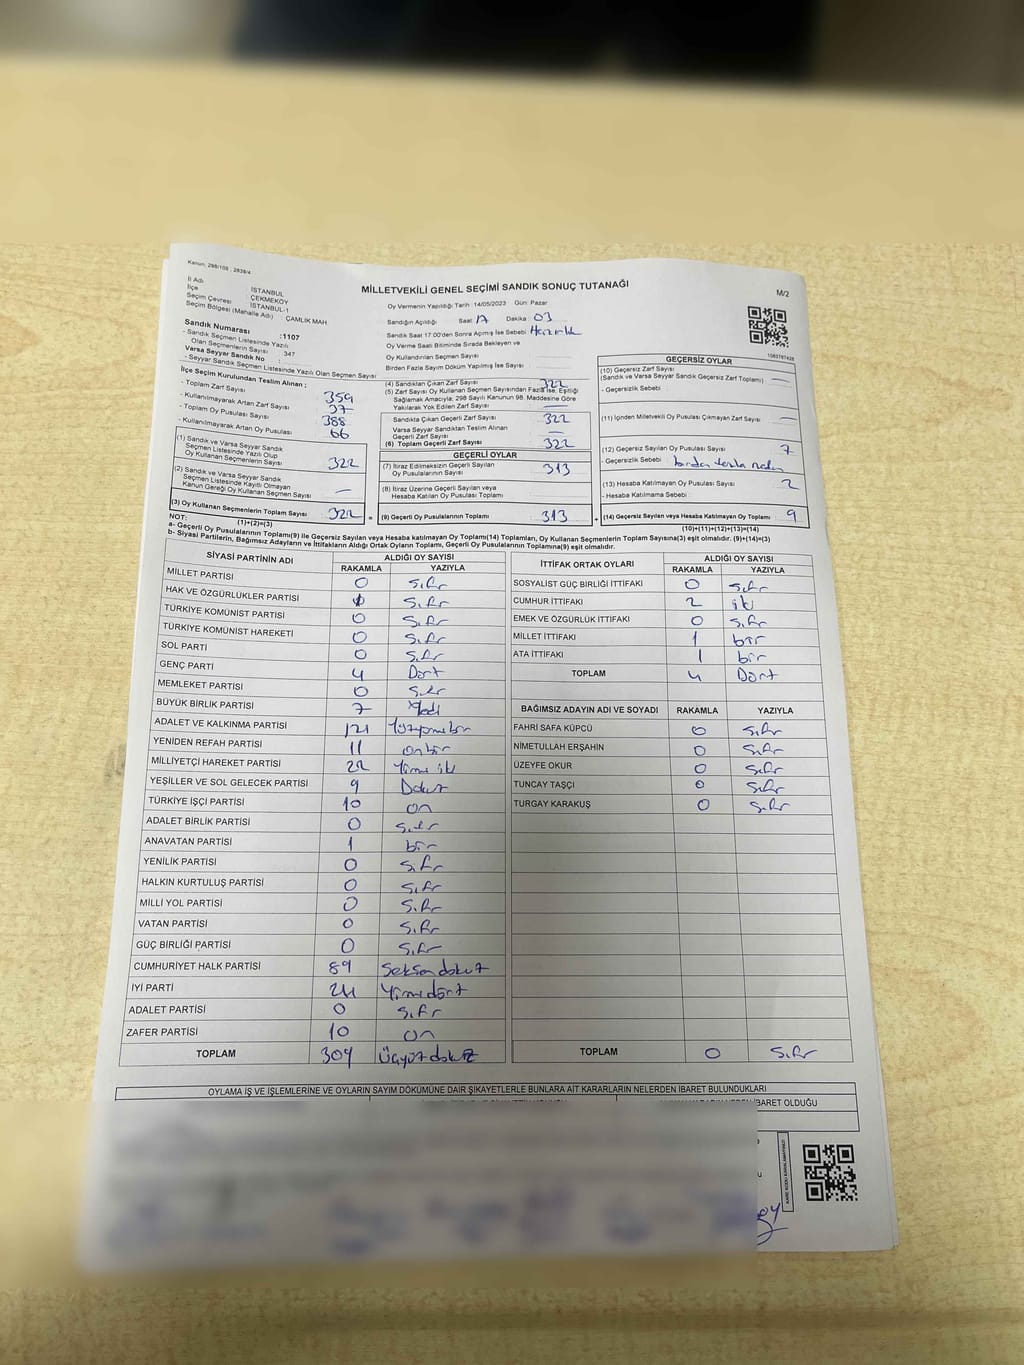 Kanun: 298/105 , 2839/4
MİLLETVEKİLİ GENEL SEÇİMİ SANDIK SONUÇ TUTANAĞI
M/2
İl Adı İSTANBUL
İlçe ÇEKMEKÖY
Seçim Çevresi İSTANBUL-1
Seçim Bölgesi (Mahalle Adı) : ÇAMLIK MAH.
Sandık Numarası :1107
- Sandık Seçmen Listesinde Yazılı
Olan Seçmenlerin Sayısı 347
Varsa Seyyar Sandık No
- Seyyar Sandık Seçmen Listesinde Yazılı Olan Seçmen Sayısı
Oy Vermenin Yapıldığı Tarih :14/05/2023 Gün: Pazar
Sandığın Açıldığı Saat 17 Dakika : 03
Sandık Saat 17:00'den Sonra Açımış İse Sebebi : Hazırlık
Oy Verme Saati Bitiminde Sırada Bekleyen ve
Oy Kullandırılan Seçmen Sayısı
Birden Fazla Sayım Döküm Yapılmış İse Sayısı
İlçe Seçim Kurulundan Teslim Alınan :
- Toplam Zarf Sayısı 359
- Kullanılmayarak Artan Zarf Sayısı 37
- Toplam Oy Pusulası Sayısı 388
- Kullanılmayarak Artan Oy Pusulası 66
(1) Sandık ve Varsa Seyyar Sandık
Seçmen Listesinde Yazılı Olup
Oy Kullanan Seçmenlerin Sayısı 322
(2) Sandık ve Varsa Seyyar Sandık
Seçmen Listesinde Kayıtlı Olmayan
Kanun Gereği Oy Kullanan Seçmen Sayısı —
(3) Oy Kullanan Seçmenlerin Toplam Sayısı 322
(1)+(2)=(3)
(4) Sandıktan Çıkan Zarf Sayısı 322
(5) Zarf Sayısı Oy Kullanan Seçmen Sayısından Fazla ise, Eşitliği
Sağlamak Amacıyla, 298 Sayılı Kanunun 98. Maddesine Göre
Yakılarak Yok Edilen Zarf Sayısı —
Sandıkta Çıkan Geçerli Zarf Sayısı 322
Varsa Seyyar Sandıktan Teslim Alınan
Geçerli Zarf Sayısı —
(6) Toplam Geçerli Zarf Sayısı 322
GEÇERLİ OYLAR
(7) İtiraz Edilmeksizin Geçerli Sayılan
Oy Pusulalarının Sayısı 313
(8) İtiraz Üzerine Geçerli Sayılan veya
Hesaba Katılan Oy Pusulası Toplamı
(9) Geçerli Oy Pusulalarının Toplamı 313
GEÇERSİZ OYLAR
(10) Geçersiz Zarf Sayısı
(Sandık ve Varsa Seyyar Sandık Geçersiz Zarf Toplamı) —
- Geçersizlik Sebebi
(11) İçinden Milletvekili Oy Pusulası Çıkmayan Zarf Sayısı —
(12) Geçersiz Sayılan Oy Pusulası Sayısı 7
- Geçersizlik Sebebi birden fazla
(13) Hesaba Katılmayan Oy Pusulası Sayısı 2
- Hesaba Katılmama Sebebi
(14) Geçersiz Sayılan veya Hesaba Katılmayan Oy Toplamı 9
(10)+(11)+(12)+(13)=(14)
NOT:
a- Geçerli Oy Pusulalarının Toplamı(9) ile Geçersiz Sayılan veya Hesaba katılmayan Oy Toplamı(14) Toplamları, Oy Kullanan Seçmenlerin Toplam Sayısına(3) eşit olmalıdır. (9)+(14)=(3)
b- Siyasi Partilerin, Bağımsız Adayların ve İttifakların Aldığı Ortak Oyların Toplamı, Geçerli Oy Pusulalarının Toplamına(9) eşit olmalıdır.
SİYASİ PARTİNİN ADI ALDIĞI OY SAYISI
RAKAMLA YAZIYLA
MİLLET PARTİSİ 0 Sıfır
HAK VE ÖZGÜRLÜKLER PARTİSİ 0 Sıfır
TÜRKİYE KOMÜNİST PARTİSİ 0 Sıfır
TÜRKİYE KOMÜNİST HAREKETİ 0 Sıfır
SOL PARTİ 0 Sıfır
GENÇ PARTİ 4 Dört
MEMLEKET PARTİSİ 0 Sıfır
BÜYÜK BİRLİK PARTİSİ 7 Yedi
ADALET VE KALKINMA PARTİSİ 121 Yüzyirmibir
YENİDEN REFAH PARTİSİ 11 onbir
MİLLİYETÇİ HAREKET PARTİSİ 22 Yirmi iki
YEŞİLLER VE SOL GELECEK PARTİSİ 9 Dokuz
TÜRKİYE İŞÇİ PARTİSİ 10 on
ADALET BİRLİK PARTİSİ 0 Sıfır
ANAVATAN PARTİSİ 1 bir
YENİLİK PARTİSİ 0 Sıfır
HALKIN KURTULUŞ PARTİSİ 0 Sıfır
MİLLİ YOL PARTİSİ 0 Sıfır
VATAN PARTİSİ 0 Sıfır
GÜÇ BİRLİĞİ PARTİSİ 0 Sıfır
CUMHURİYET HALK PARTİSİ 89 Seksendokuz
İYİ PARTİ 24 Yirmidört
ADALET PARTİSİ 0 Sıfır
ZAFER PARTİSİ 10 on
TOPLAM 309 Üçyüzdokuz
İTTİFAK ORTAK OYLARI ALDIĞI OY SAYISI
RAKAMLA YAZIYLA
SOSYALİST GÜÇ BİRLİĞİ İTTİFAKI 0 Sıfır
CUMHUR İTTİFAKI 2 iki
EMEK VE ÖZGÜRLÜK İTTİFAKI 0 Sıfır
MİLLET İTTİFAKI 1 bir
ATA İTTİFAKI 1 bir
TOPLAM 4 Dört
BAĞIMSIZ ADAYIN ADI VE SOYADI RAKAMLA YAZIYLA
FAHRİ SAFA KÜPCÜ 0 Sıfır
NİMETULLAH ERŞAHİN 0 Sıfır
ÜZEYFE OKUR 0 Sıfır
TUNCAY TAŞÇI 0 Sıfır
TURGAY KARAKUŞ 0 Sıfır
TOPLAM 0 Sıfır
OYLAMA İŞ VE İŞLEMLERİNE VE OYLARIN SAYIM DÖKÜMÜNE DAİR ŞİKAYETLERLE BUNLARA AİT KARARLARIN NELERDEN İBARET BULUNDUKLARI
İBARET OLDUĞU